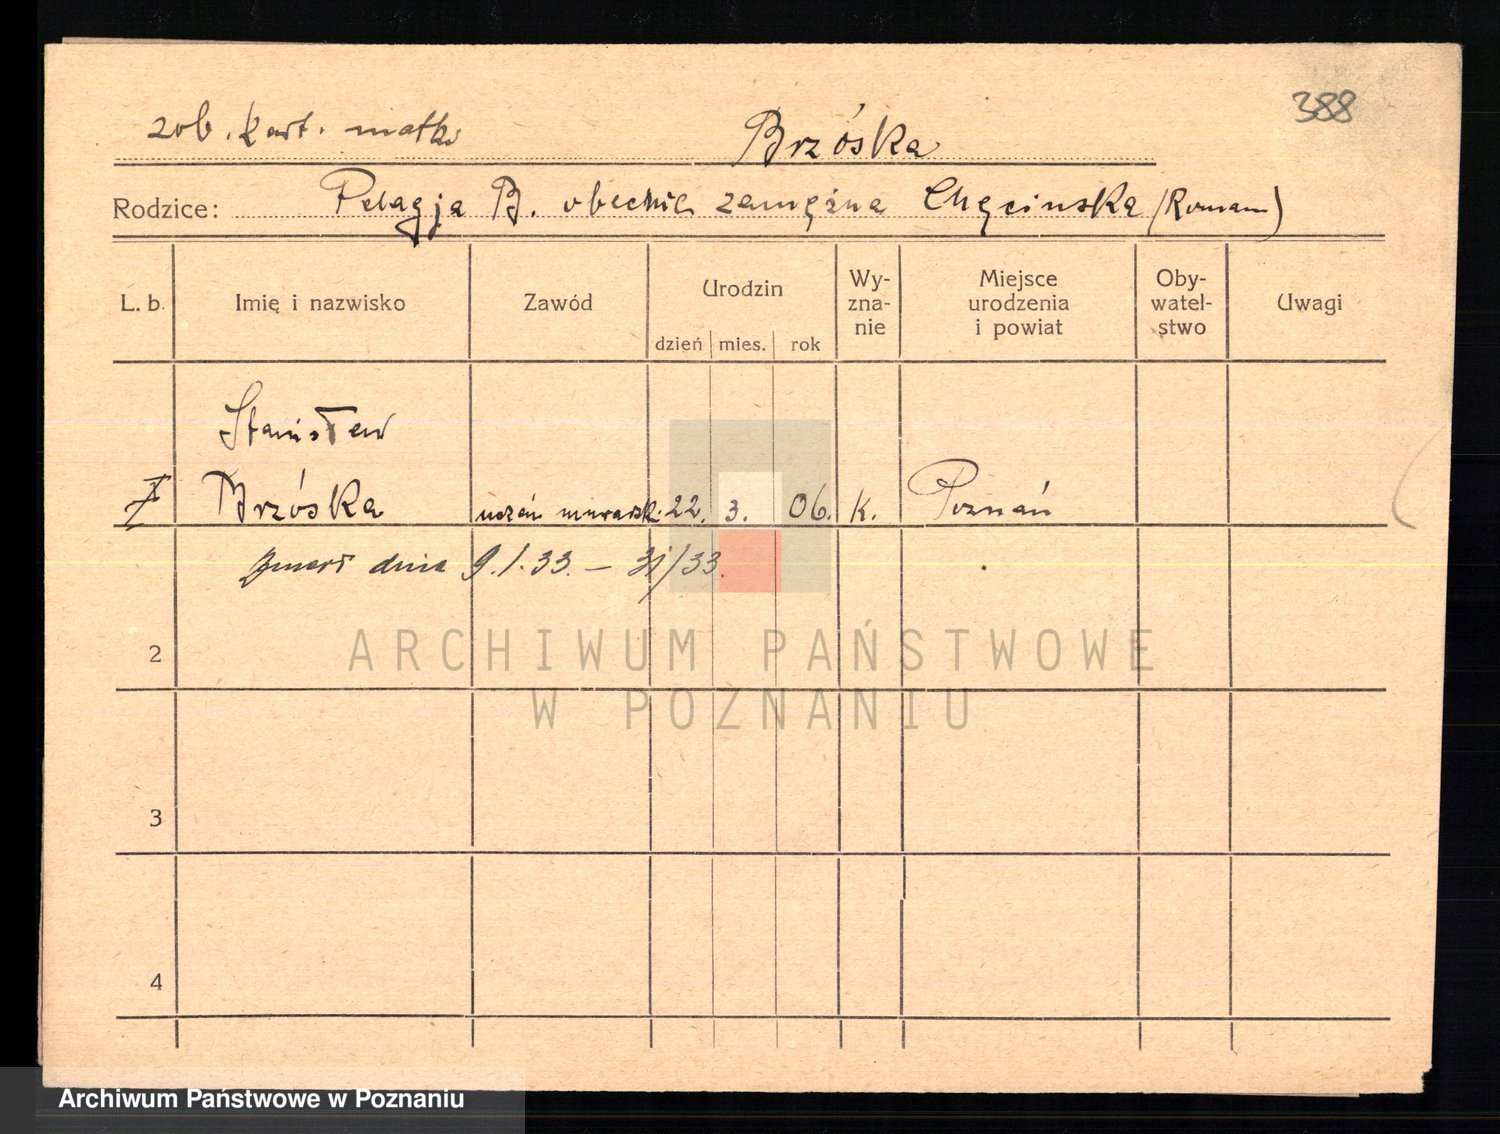 388
zob. kart. matki
Brzóska
Rodzice: Pelagja B. obecnie zamężna Chęcinska (Roman)
L. b. Imię i nazwisko Zawód Urodzin Wy-zna-nie Miejsce urodzenia i powiat Oby-watel-stwo Uwagi
dzień mies. rok
Stanisław
Brzóska uczeń murarsk. 22. 3. 06. k. Poznań
Zmarł dnia 9.1.33. – 31/33.
2
ARCHIWUM PAŃSTWOWE
W POZNANIU
3
4
Archiwum Państwowe w Poznaniu